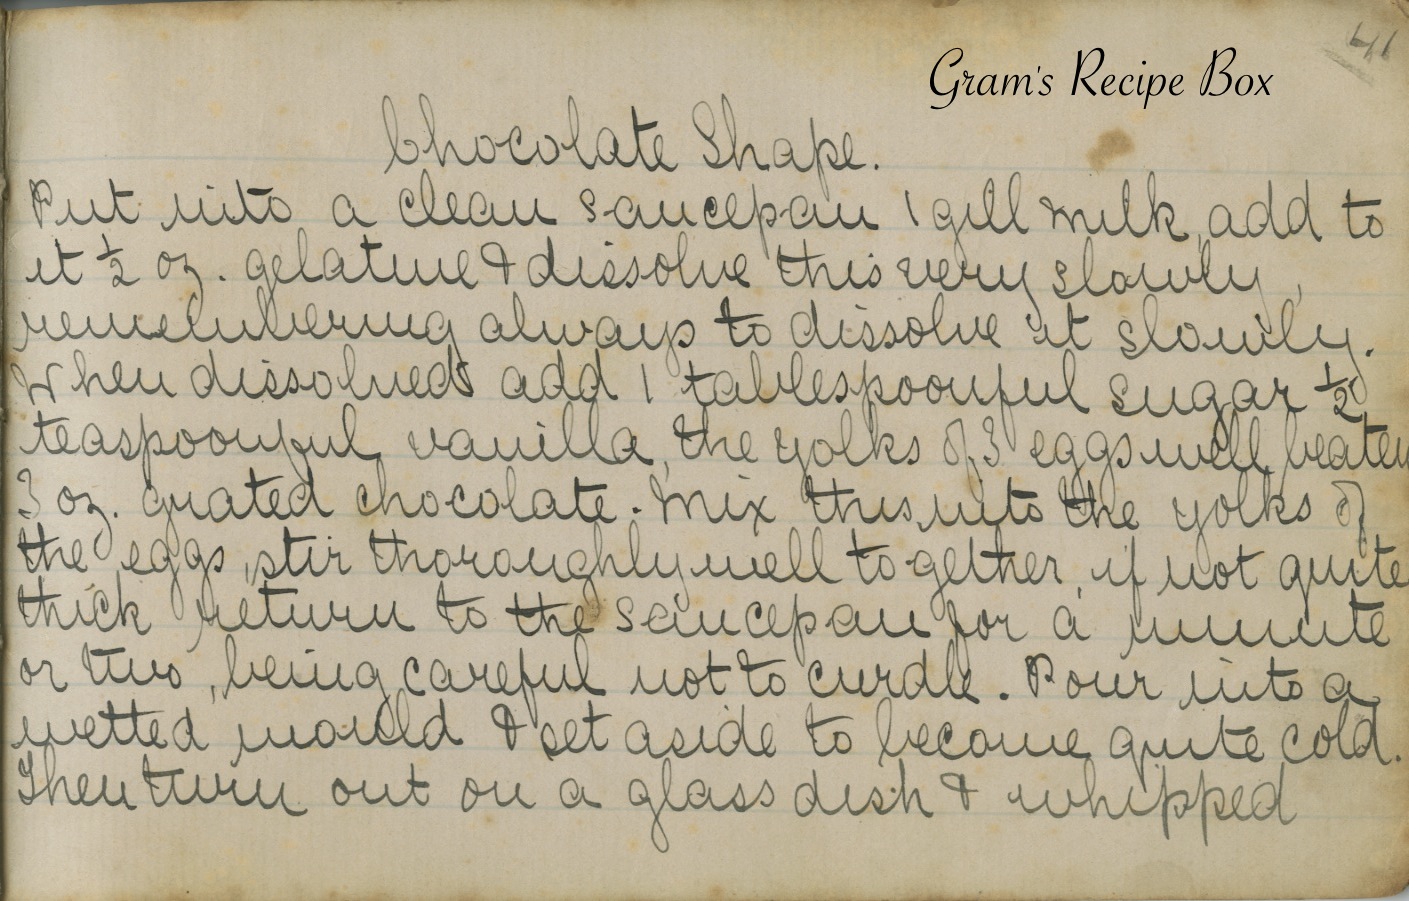 41
Gram's Recipe Box
Chocolate Shape.
Put into a clean saucepan 1 gill milk, add to
it ½ oz. gelatine & dissolve this very slowly,
remembering always to dissolve it slowly.
When dissolved add 1 tablespoonful sugar ½
teaspoonful vanilla, the yolks of 3 eggs well beaten
3 oz. grated chocolate. Mix this into the yolks of
the eggs, stir thoroughly well together, if not quite
thick return to the saucepan for a minute
or two, being careful not to curdle. Pour into a
wetted mould & set aside to become quite cold.
Then turn out on a glass dish & whipped